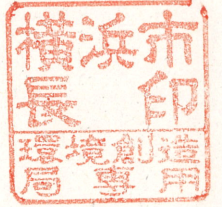 横浜市
長印
環境創造
局専用